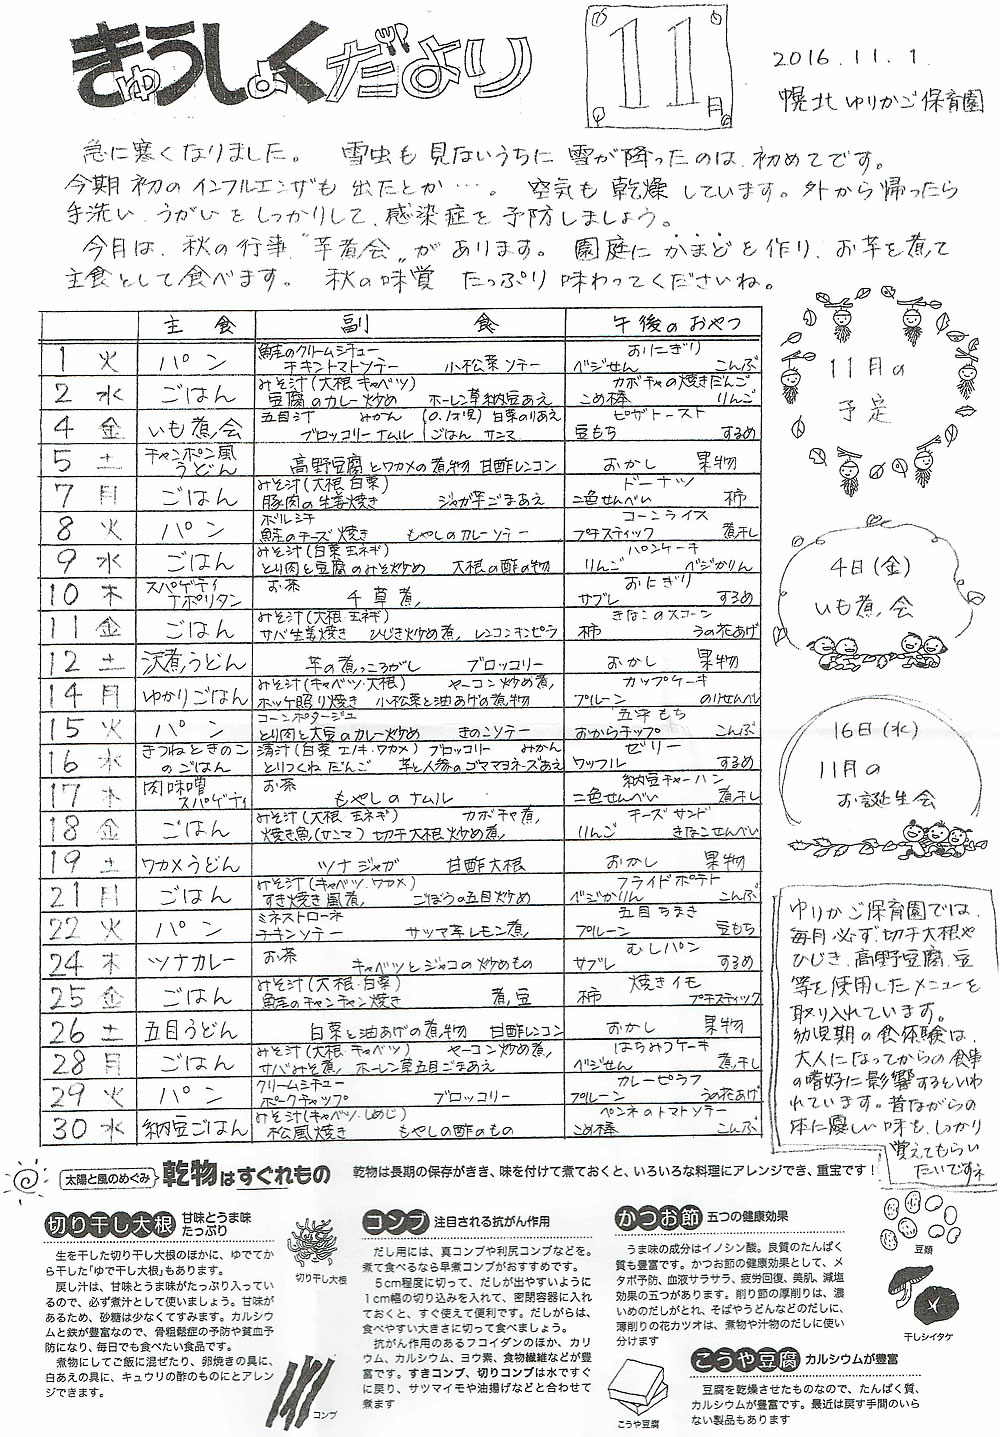 きゅうしょくだより
11月
2016.11.1.
幌北ゆりかご保育園
急に寒くなりました。 雪虫も見ないうちに雪が降ったのは、初めてです。
今期初のインフルエンザも出たとか…。 空気も乾燥しています。外から帰ったら
手洗い、うがいをしっかりして、感染症を予防しましょう。
今月は、秋の行事 "芋煮会" があります。 園庭にかまどを作り、お芋を煮て
主食として食べます。 秋の味覚 たっぷり味わってくださいね。
主食 副食 午後のおやつ
1 火 パン 鮭のクリームシチュー チキントマトソテー 小松菜ソテー おにぎり ベジせん こんぶ
2 水 ごはん みそ汁(大根 キャベツ) 豆腐のカレー炒め ホーレン草納豆あえ カボチャの焼きだんご こめ棒 りんご
4 金 いも煮会 五目汁 みかん (0.1才児) 白菜のりあえ ブロッコリーナムル ごはん サンマ ピザトースト 豆もち するめ
5 土 チャンポン風うどん 高野豆腐とワカメの煮物 甘酢レンコン おかし 果物
7 月 ごはん みそ汁(大根 白菜) 豚肉の生姜焼き ジャガ芋ごまあえ ドーナツ 二色せんべい 柿
8 火 パン ボルシチ 鮭のチーズ焼き もやしのカレーソテー コーンライス プチスティック 煮干し
9 水 ごはん みそ汁(白菜 玉ネギ) とり肉と豆腐のみそ炒め 大根の酢の物 パンケーキ りんご ベジかりん
10 木 スパゲティナポリタン お茶 千草煮 おにぎり サブレ するめ
11 金 ごはん みそ汁(大根・玉ネギ) サバ生姜焼き ひじき炒め煮 レンコンキンピラ きなこのスコーン 柿 うの花あげ
12 土 沢煮うどん 芋の煮っころがし ブロッコリー おかし 果物
14 月 ゆかりごはん みそ汁(キャベツ・大根) ヤーコン炒め煮 ホッケ照り焼き 小松菜と油あげの煮物 カップケーキ プルーン のりせんべい
15 火 パン コーンポタージュ とり肉と大豆のカレー炒め きのこソテー 五平もち おからチップ こんぶ
16 水 きつねときのこのごはん 清汁(白菜 エノキ・ワカメ) ブロッコリー みかん とりつくねだんご 芋と人参のゴママヨネーズあえ ゼリー ワッフル するめ
17 木 肉味噌スパゲティ お茶 もやしのナムル 納豆チャーハン 二色せんべい 煮干し
18 金 ごはん みそ汁(大根 玉ネギ) カボチャ煮 焼き魚(サンマ) 切干大根炒め煮 チーズサンド りんご きなこせんべい
19 土 ワカメうどん ツナジャガ 甘酢大根 おかし 果物
21 月 ごはん みそ汁(キャベツ・ワカメ) すき焼き風煮 ごぼうの五目炒め フライドポテト ベジかりん こんぶ
22 火 パン ミネストローネ チキンソテー サツマ芋レモン煮 五目ちまき プルーン 豆もち
24 木 ツナカレー お茶 キャベツとジャコの炒めもの むしパン サブレ するめ
25 金 ごはん みそ汁(大根・白菜) 鮭のチャンチャン焼き 煮豆 焼きイモ 柿 プチスティック
26 土 五目うどん 白菜と油あげの煮物 甘酢レンコン おかし 果物
28 月 ごはん みそ汁(大根・キャベツ) ヤーコン炒め煮 サバみそ煮 ホーレン草五目ごまあえ はちみつケーキ ベジせん 煮干し
29 火 パン クリームシチュー ポークチャップ ブロッコリー カレーピラフ プルーン うの花あげ
30 水 納豆ごはん みそ汁(キャベツ・しめじ) 松風焼き もやしの酢のもの ペンネのトマトソテー こめ棒 こんぶ
11月の
予定
4日(金)
いも煮会
16日(水)
11月の
お誕生会
ゆりかご保育園では、
毎月必ず、切干大根や
ひじき、高野豆腐、豆
等を使用したメニューを
取り入れています。
幼児期の食体験は、
大人になってからの食事
の嗜好に影響するといわ
れています。昔ながらの
体に優しい味を、しっかり
覚えてもらい
たいですネ
太陽と風のめぐみ 乾物はすぐれもの 乾物は長期の保存がきき、味を付けて煮ておくと、いろいろな料理にアレンジでき、重宝です！
切り干し大根 甘味とうま味たっぷり
生を干した切り干し大根のほかに、ゆでてか
ら干した「ゆで干し大根」もあります。
戻し汁は、甘味とうま味がたっぷり入ってい
るので、必ず煮汁として使いましょう。甘味が
あるため、砂糖は少なくてすみます。カルシウ
ムと鉄が豊富なので、骨粗鬆症の予防や貧血予
防になり、毎日でも食べたい食品です。
煮物にしてご飯に混ぜたり、卵焼きの具に、
白あえの具に、キュウリの酢のものにとアレン
ジできます。
切り干し大根
コンブ
コンブ 注目される抗がん作用
だし用には、真コンブや利尻コンブなどを。
煮て食べるなら早煮コンブがおすすめです。
5cm程度に切って、だしが出やすいように
1cm幅の切り込みを入れて、密閉容器に入れ
ておくと、すぐ使えて便利です。だしがらは、
食べやすい大きさに切って食べましょう。
抗がん作用のあるフコイダンのほか、カリ
ウム、カルシウム、ヨウ素、食物繊維などが豊
富です。すきコンブ、切りコンブは水ですぐ
に戻り、サツマイモや油揚げなどと合わせて
煮ます
かつお節 五つの健康効果
うま味の成分はイノシン酸。良質のたんぱく
質も豊富です。かつお節の健康効果として、メ
タボ予防、血液サラサラ、疲労回復、美肌、減塩
効果の五つがあります。削り節の厚削りは、濃
いめのだしがとれ、そばやうどんなどのだしに、
薄削りの花カツオは、煮物や汁物のだしに使い
分けます
豆類
干しシイタケ
こうや豆腐
こうや豆腐 カルシウムが豊富
豆腐を乾燥させたものなので、たんぱく質、
カルシウムが豊富です。最近は戻す手間のいら
ない製品もあります